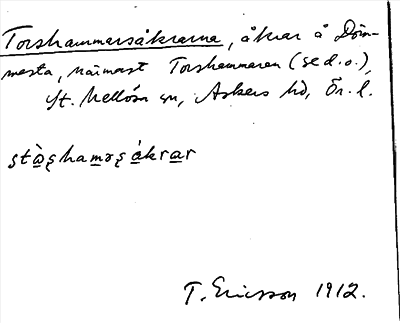 Torshammarsåkrarna, åkrar å Döm-
mesta, närmast Torshammaren (se d. o.),
St. Mellösa sn, Askers hd, Ör. l.
stà̱ʂhama̱rʂá̱kra̱r
T. Ericsson 1912.